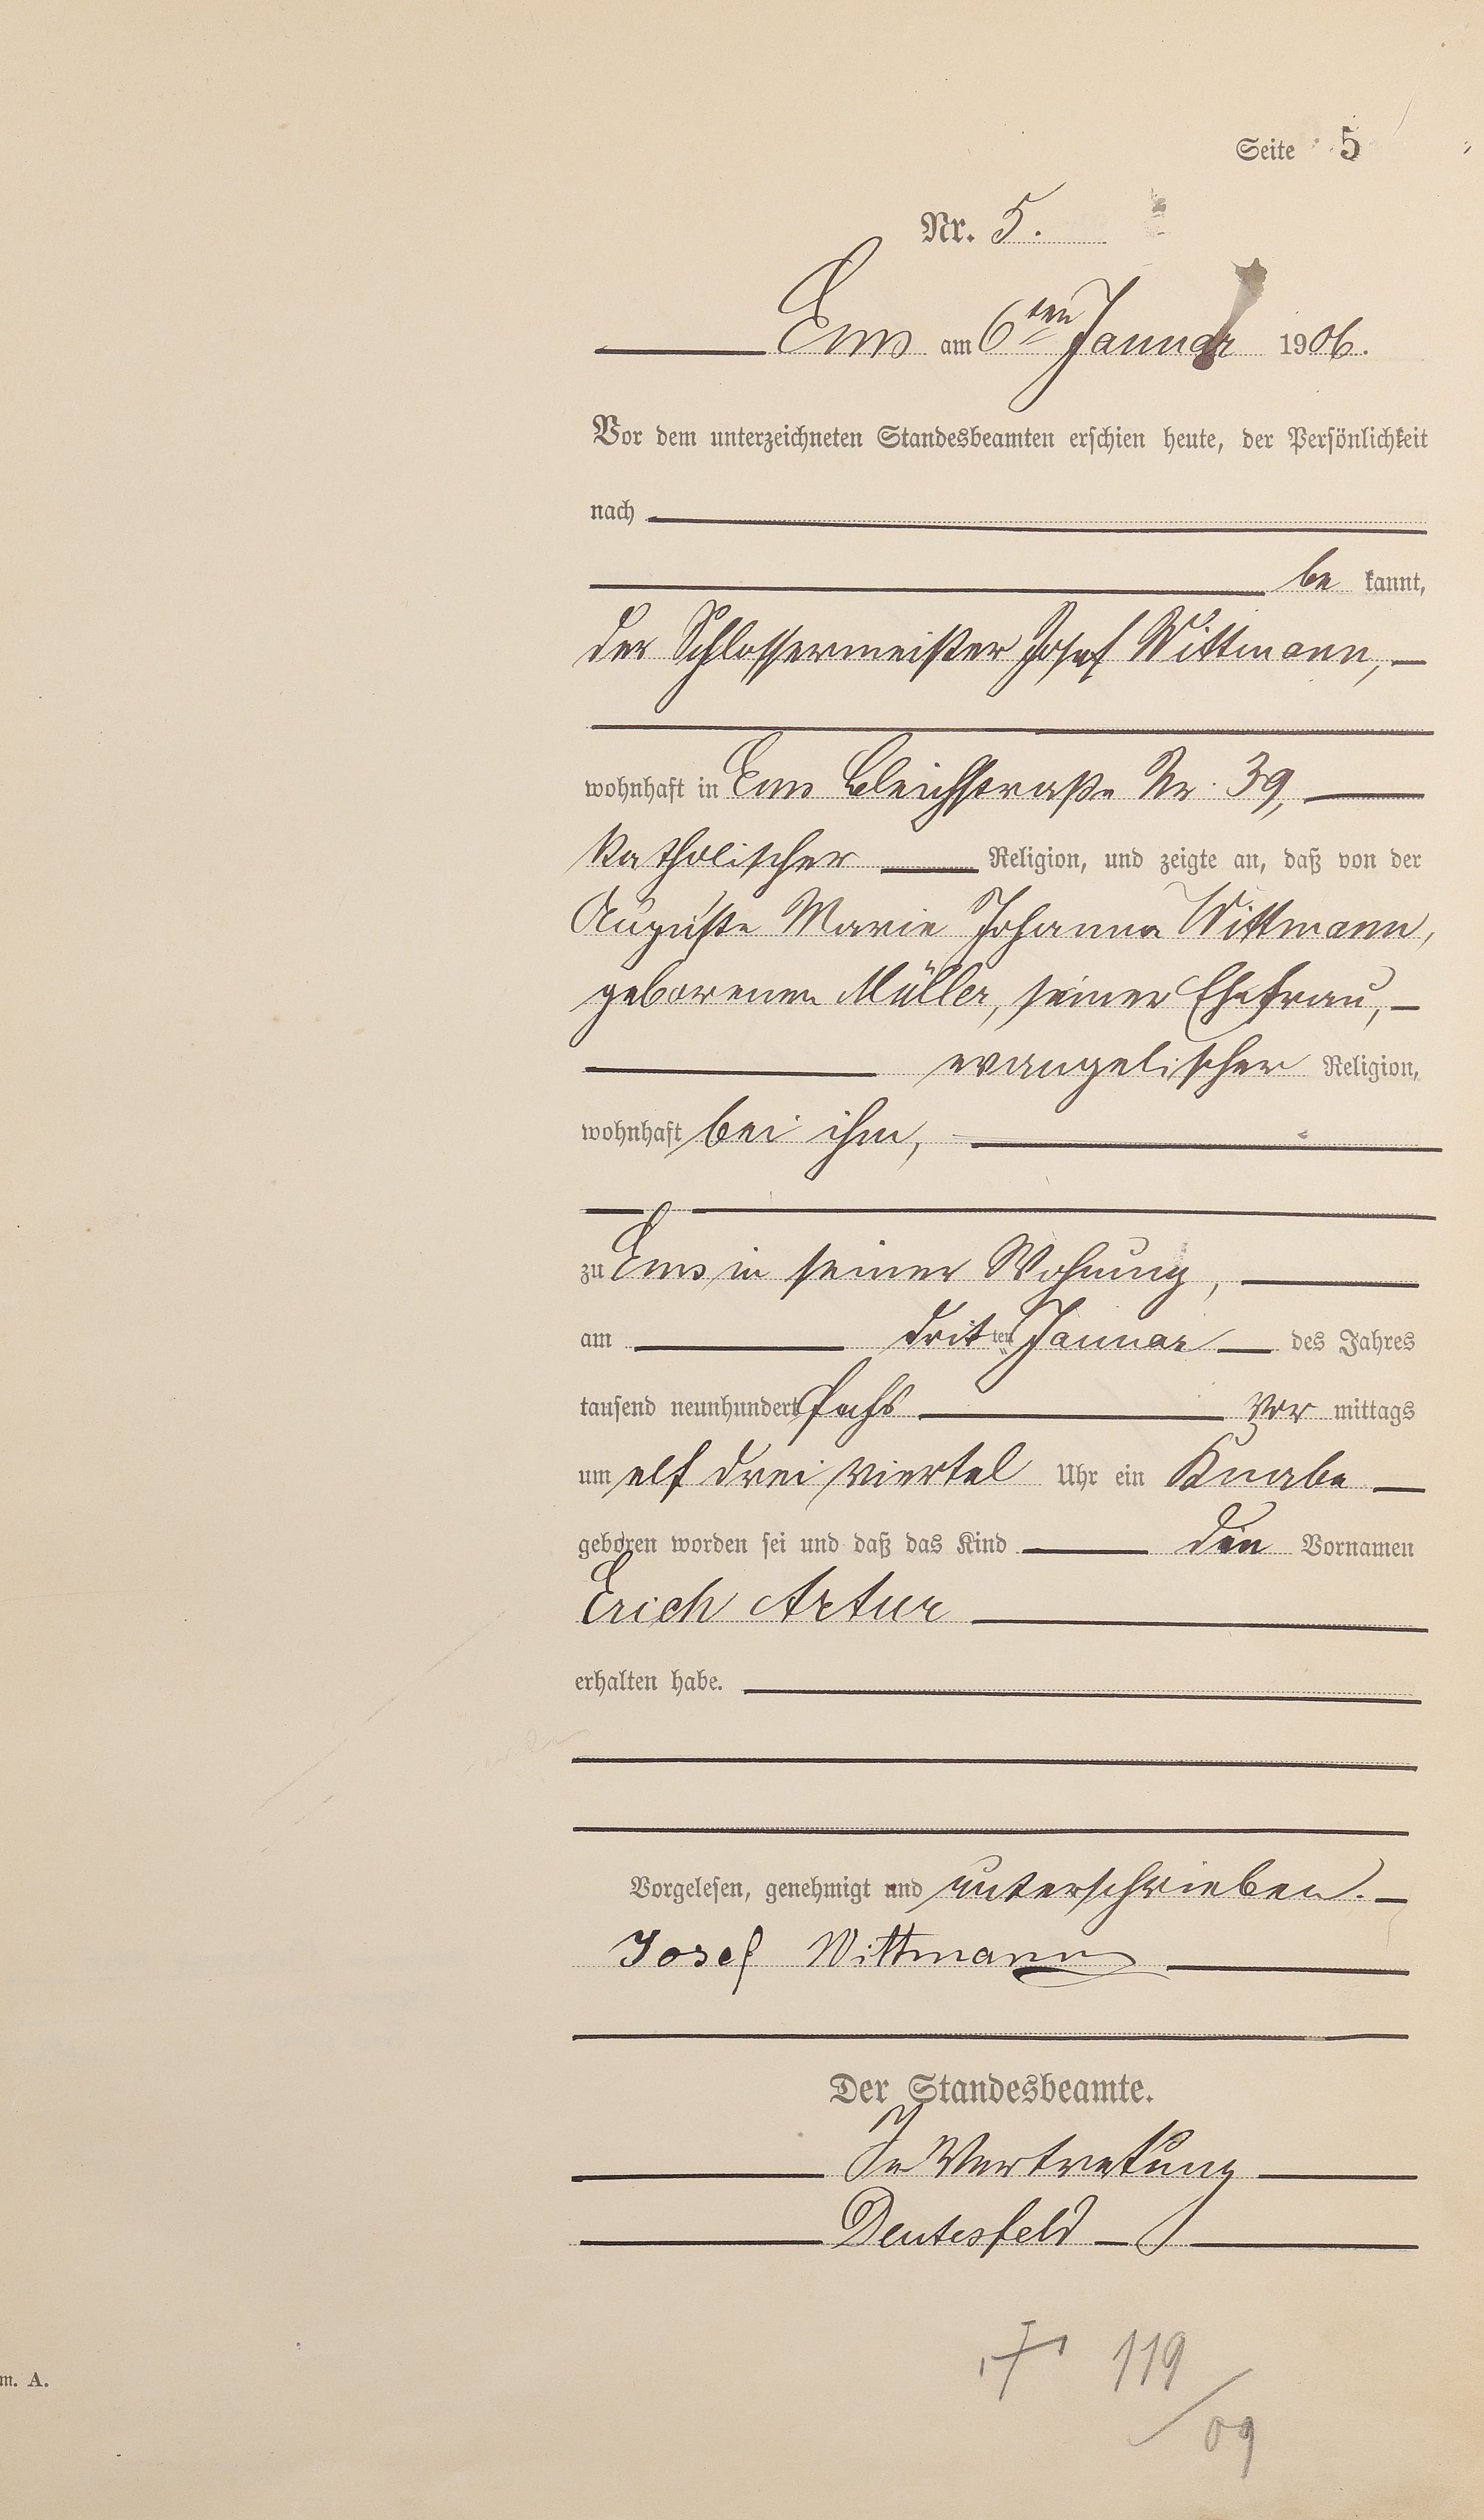 Seite 5
Nr. 5.
Ems am 6ten Januar 1906.
Vor dem unterzeichneten Standesbeamten erschien heute, der Persönlichkeit
nach
be kannt,
der Schlossermeister Josef Wittmann,
wohnhaft in Ems Bleichstraße Nr. 39,
katholischer Religion, und zeigte an, daß von der
Auguste Marie Johanna Wittmann,
geborenen Müller, seiner Ehefrau,
evangelischer Religion,
wohnhaft bei ihm,
zu Ems in seiner Wohnung,
am dritten Januar des Jahres
tausend neunhundert sechs vor mittags
um elf drei viertel Uhr ein Knabe
geboren worden sei und daß das Kind den Vornamen
Erich Artur
erhalten habe.
Vorgelesen, genehmigt und unterschrieben.
Josef Wittmann
Der Standesbeamte.
In Vertretung
Deutesfeld
m. A.
119
/09